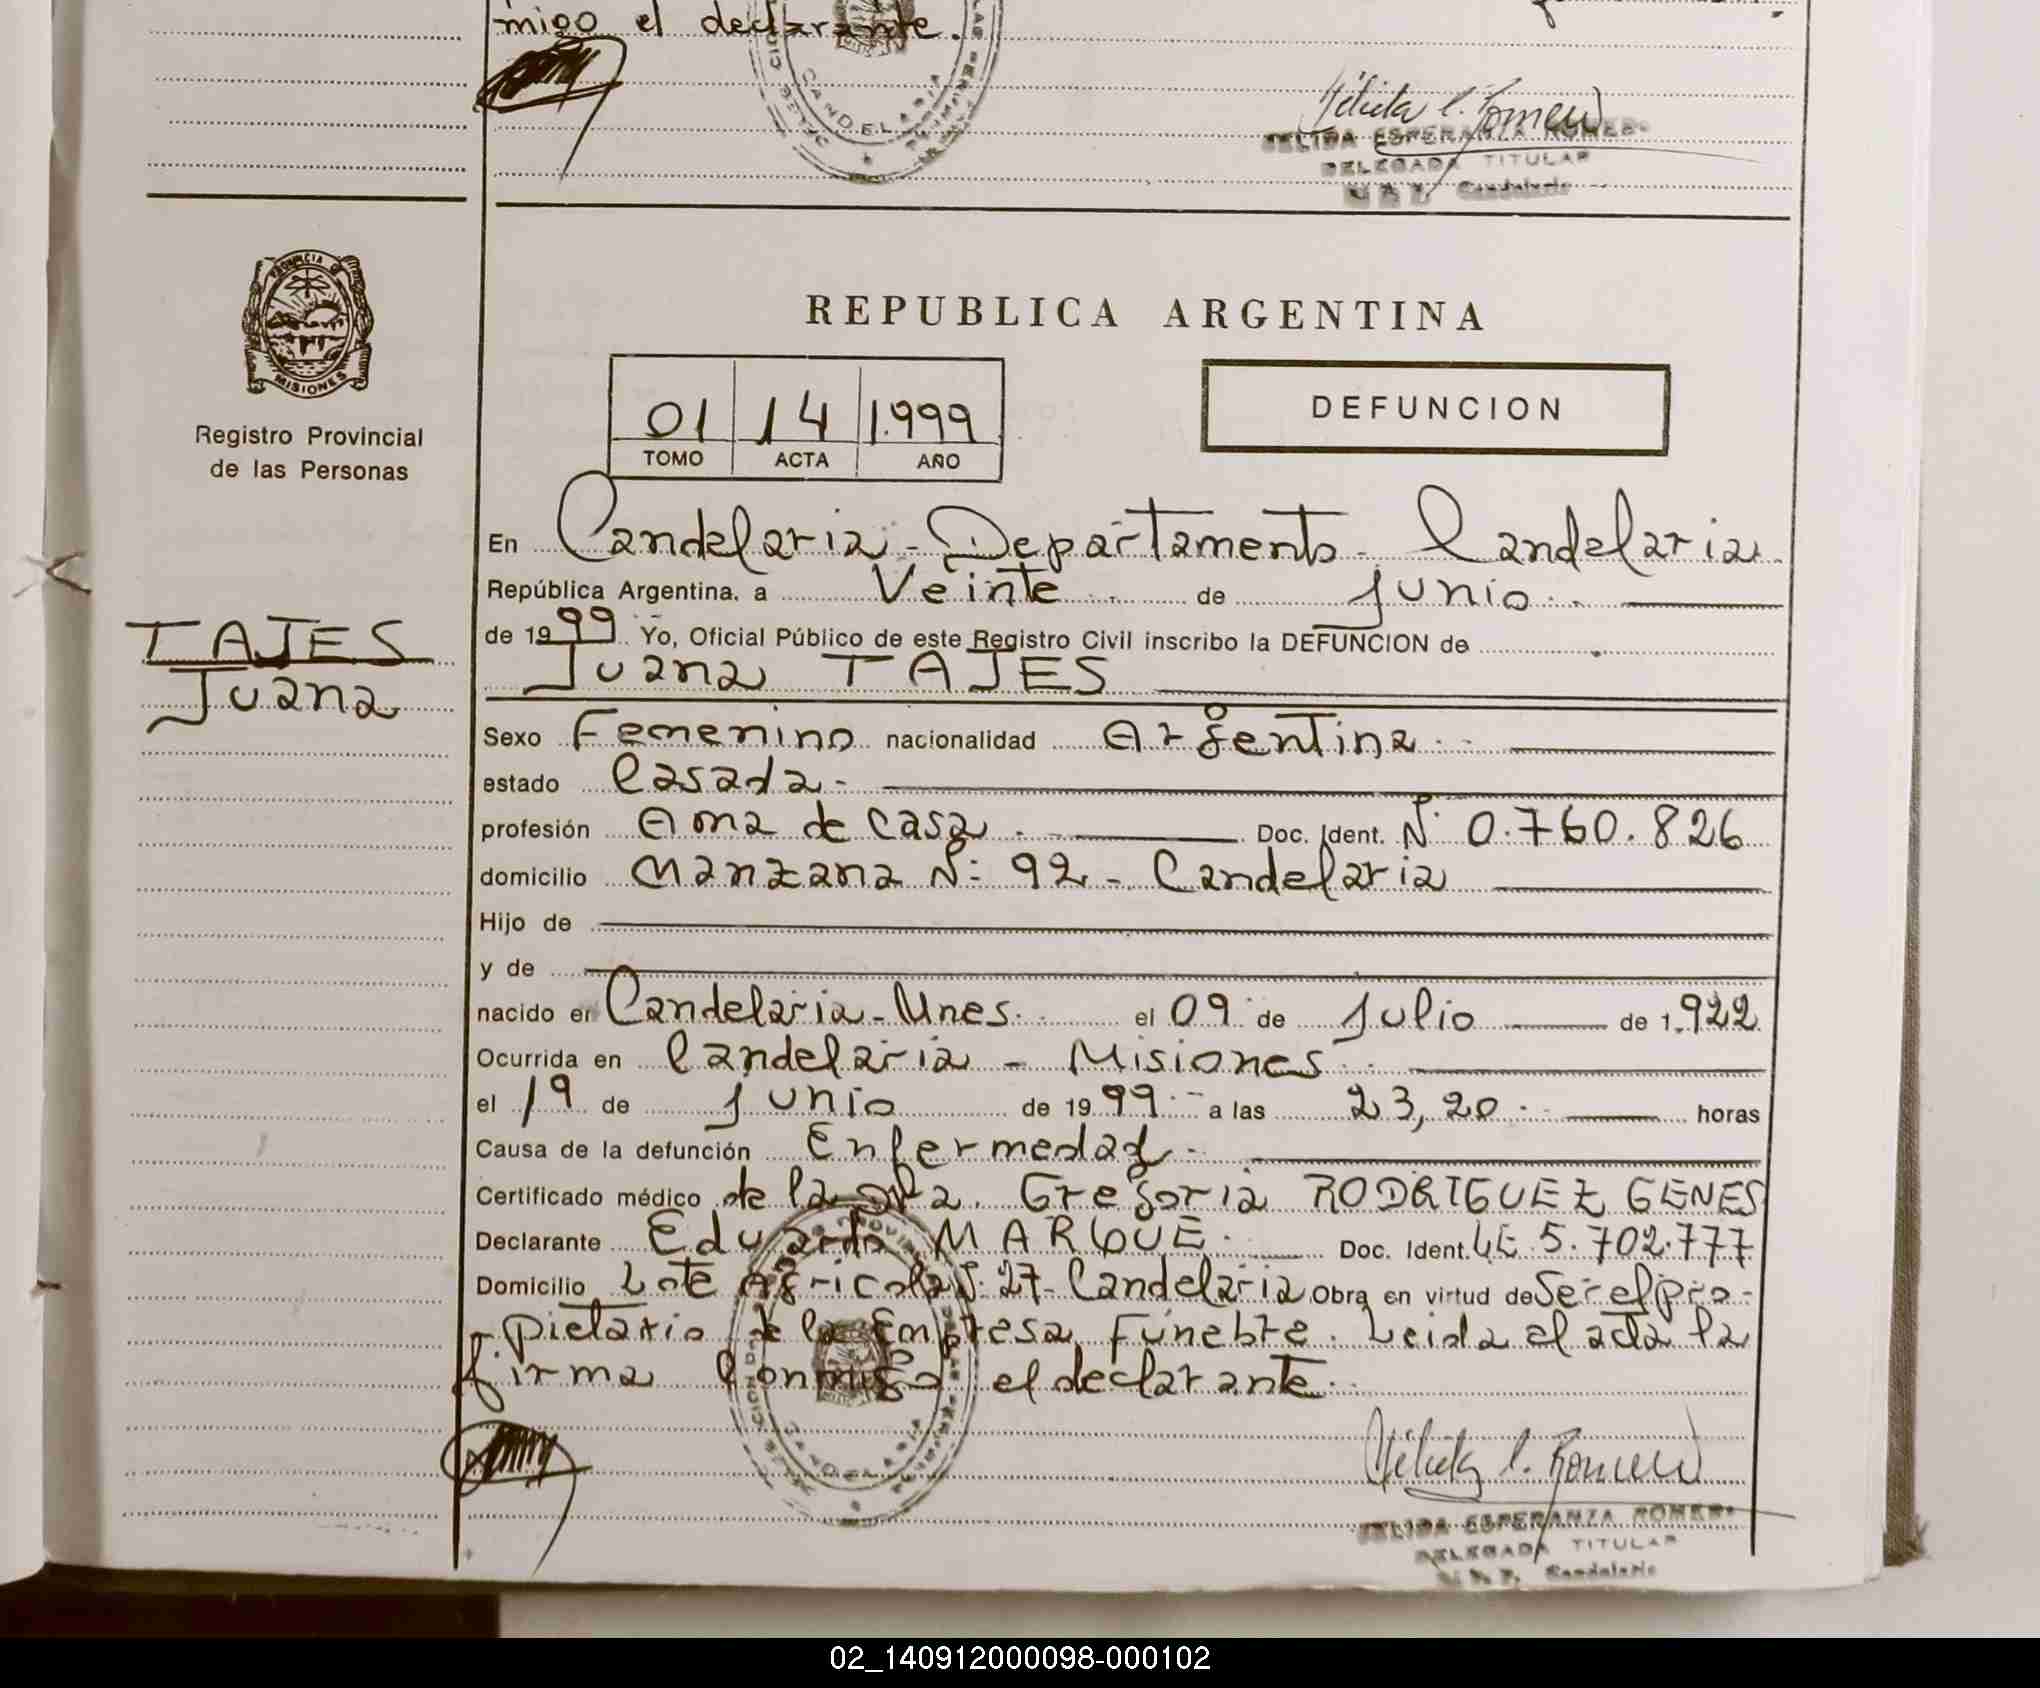 migo el declarante.
CANDELARIA
Hélida E. Romero
HELIDA ESPERANZA ROMERO
DELEGADA TITULAR
Candelaria
PROVINCIA DE
MISIONES
Registro Provincial
de las Personas
TAJES
Juana
REPUBLICA ARGENTINA
01 14 1.999
TOMO ACTA AÑO
DEFUNCION
En Candelaria - Departamento Candelaria
República Argentina. a Veinte de Junio
de 1999 Yo, Oficial Público de este Registro Civil inscribo la DEFUNCION de
Juana TAJES
Sexo Femenino nacionalidad Argentina
estado Casada
profesión Ama de casa Doc. Ident. Nº 0.760.826
domicilio Manzana Nº 92 - Candelaria
Hijo de
y de
nacido en Candelaria - Mnes. el 09 de Julio de 1.922
Ocurrida en Candelaria - Misiones
el 19 de Junio de 1999 a las 23,20 horas
Causa de la defunción Enfermedad
Certificado médico de la Dra. Gregoria RODRIGUEZ GENES
Declarante Eduardo MARQUE Doc. Ident. LE 5.702.777
Domicilio Lote Agricola Nº 27 - Candelaria Obra en virtud de Ser el pro-
pietario de la Empresa Funebre. Leida el acta la
firma Conmigo el declarante.
CANDELARIA
Hélida E. Romero
HELIDA ESPERANZA ROMERO
DELEGADA TITULAR
Candelaria
02_140912000098-000102